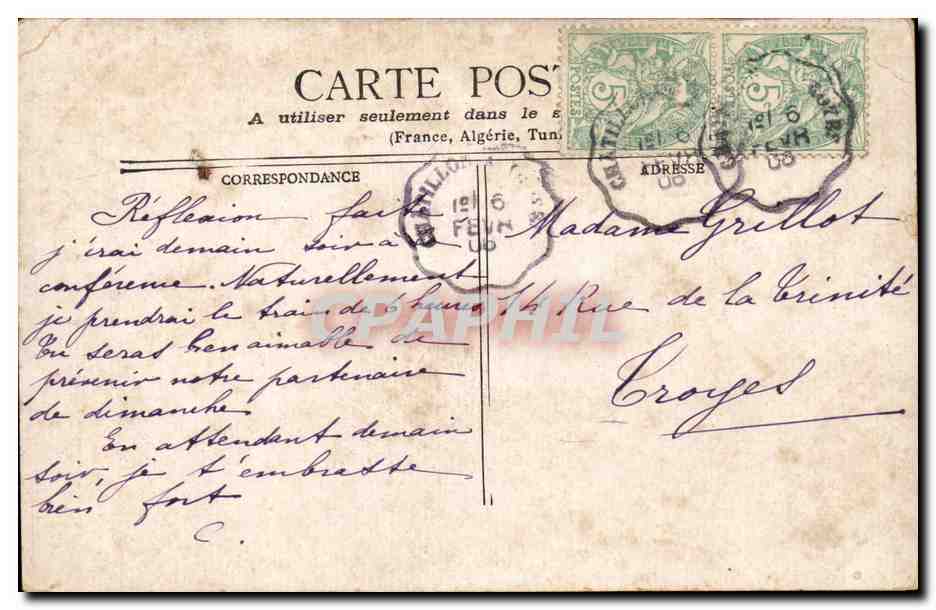 CARTE POST
A utiliser seulement dans le s
(France, Algérie, Tuni
CORRESPONDANCE
ADRESSE
POSTES 5
POSTES 5
CHATILLON
1º 6
FEVR
06
CHATILL
1º 6
FEVR
06
1º 6
FEVR
06
TROYES
Réflexion faite
j'irai demain soir à
conférence. Naturellement
je prendrai le train de 6 heures
Tu seras bien aimable de
prévenir notre partenaire
de dimanche
En attendant demain
soir, je t'embrasse
bien fort
C.
Madame Grillot
14 Rue de la Trinité
Troyes
CPAPHIL